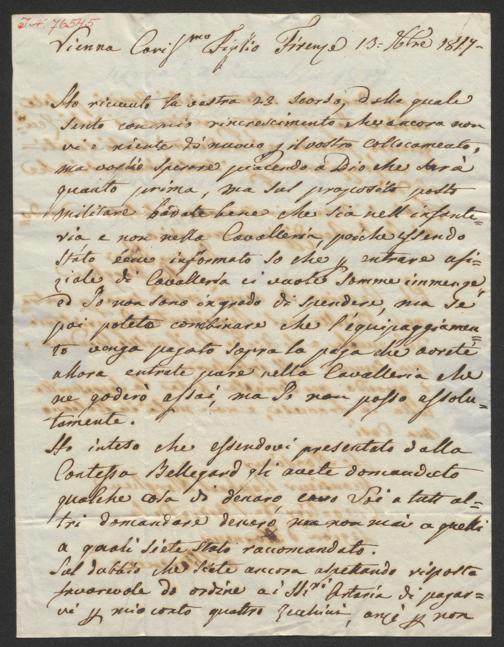 I.N. 76545
Vienna Cariss.mo Figlio Firenze 13: 1817
Ho ricevuto la vostra 22. scorso, dalla quale
sento con mio rincrescimento che ancora non
vi è niente di nuovo p il vostro collocamento,
ma voglio sperare piacendo a Dio che sarà
quanto prima, ma sul proposito posto
militare badate bene che sia nell'infante=
ria e non nella Cavalleria, poiche essendo
stato bene informato so che p entrare ofi=
ziale di Cavalleria ci vuole somme immenze
ed Io non sono in grado di spendere, ma se
poi potete combinare che l'equipaggiamen=
to venga pagato sopra la paga che avrete
allora entrate pure nella Cavalleria che
ne goderò assai, ma Io non posso assolu=
tamente.
Ho inteso che essendovi presentato dalla
Contessa Bellegard gli avete domandato
qualche cosa di denaro a tutti al=
tri domandare denaro, ma non mai a quelli
a quali siete stato raccomandato.
Sul dubbio che siete ancora aspettando risposta
favorevole do ordine a i SS.ri Artaria di pagar=
vi p mio conto quattro zecchini, anzi p non